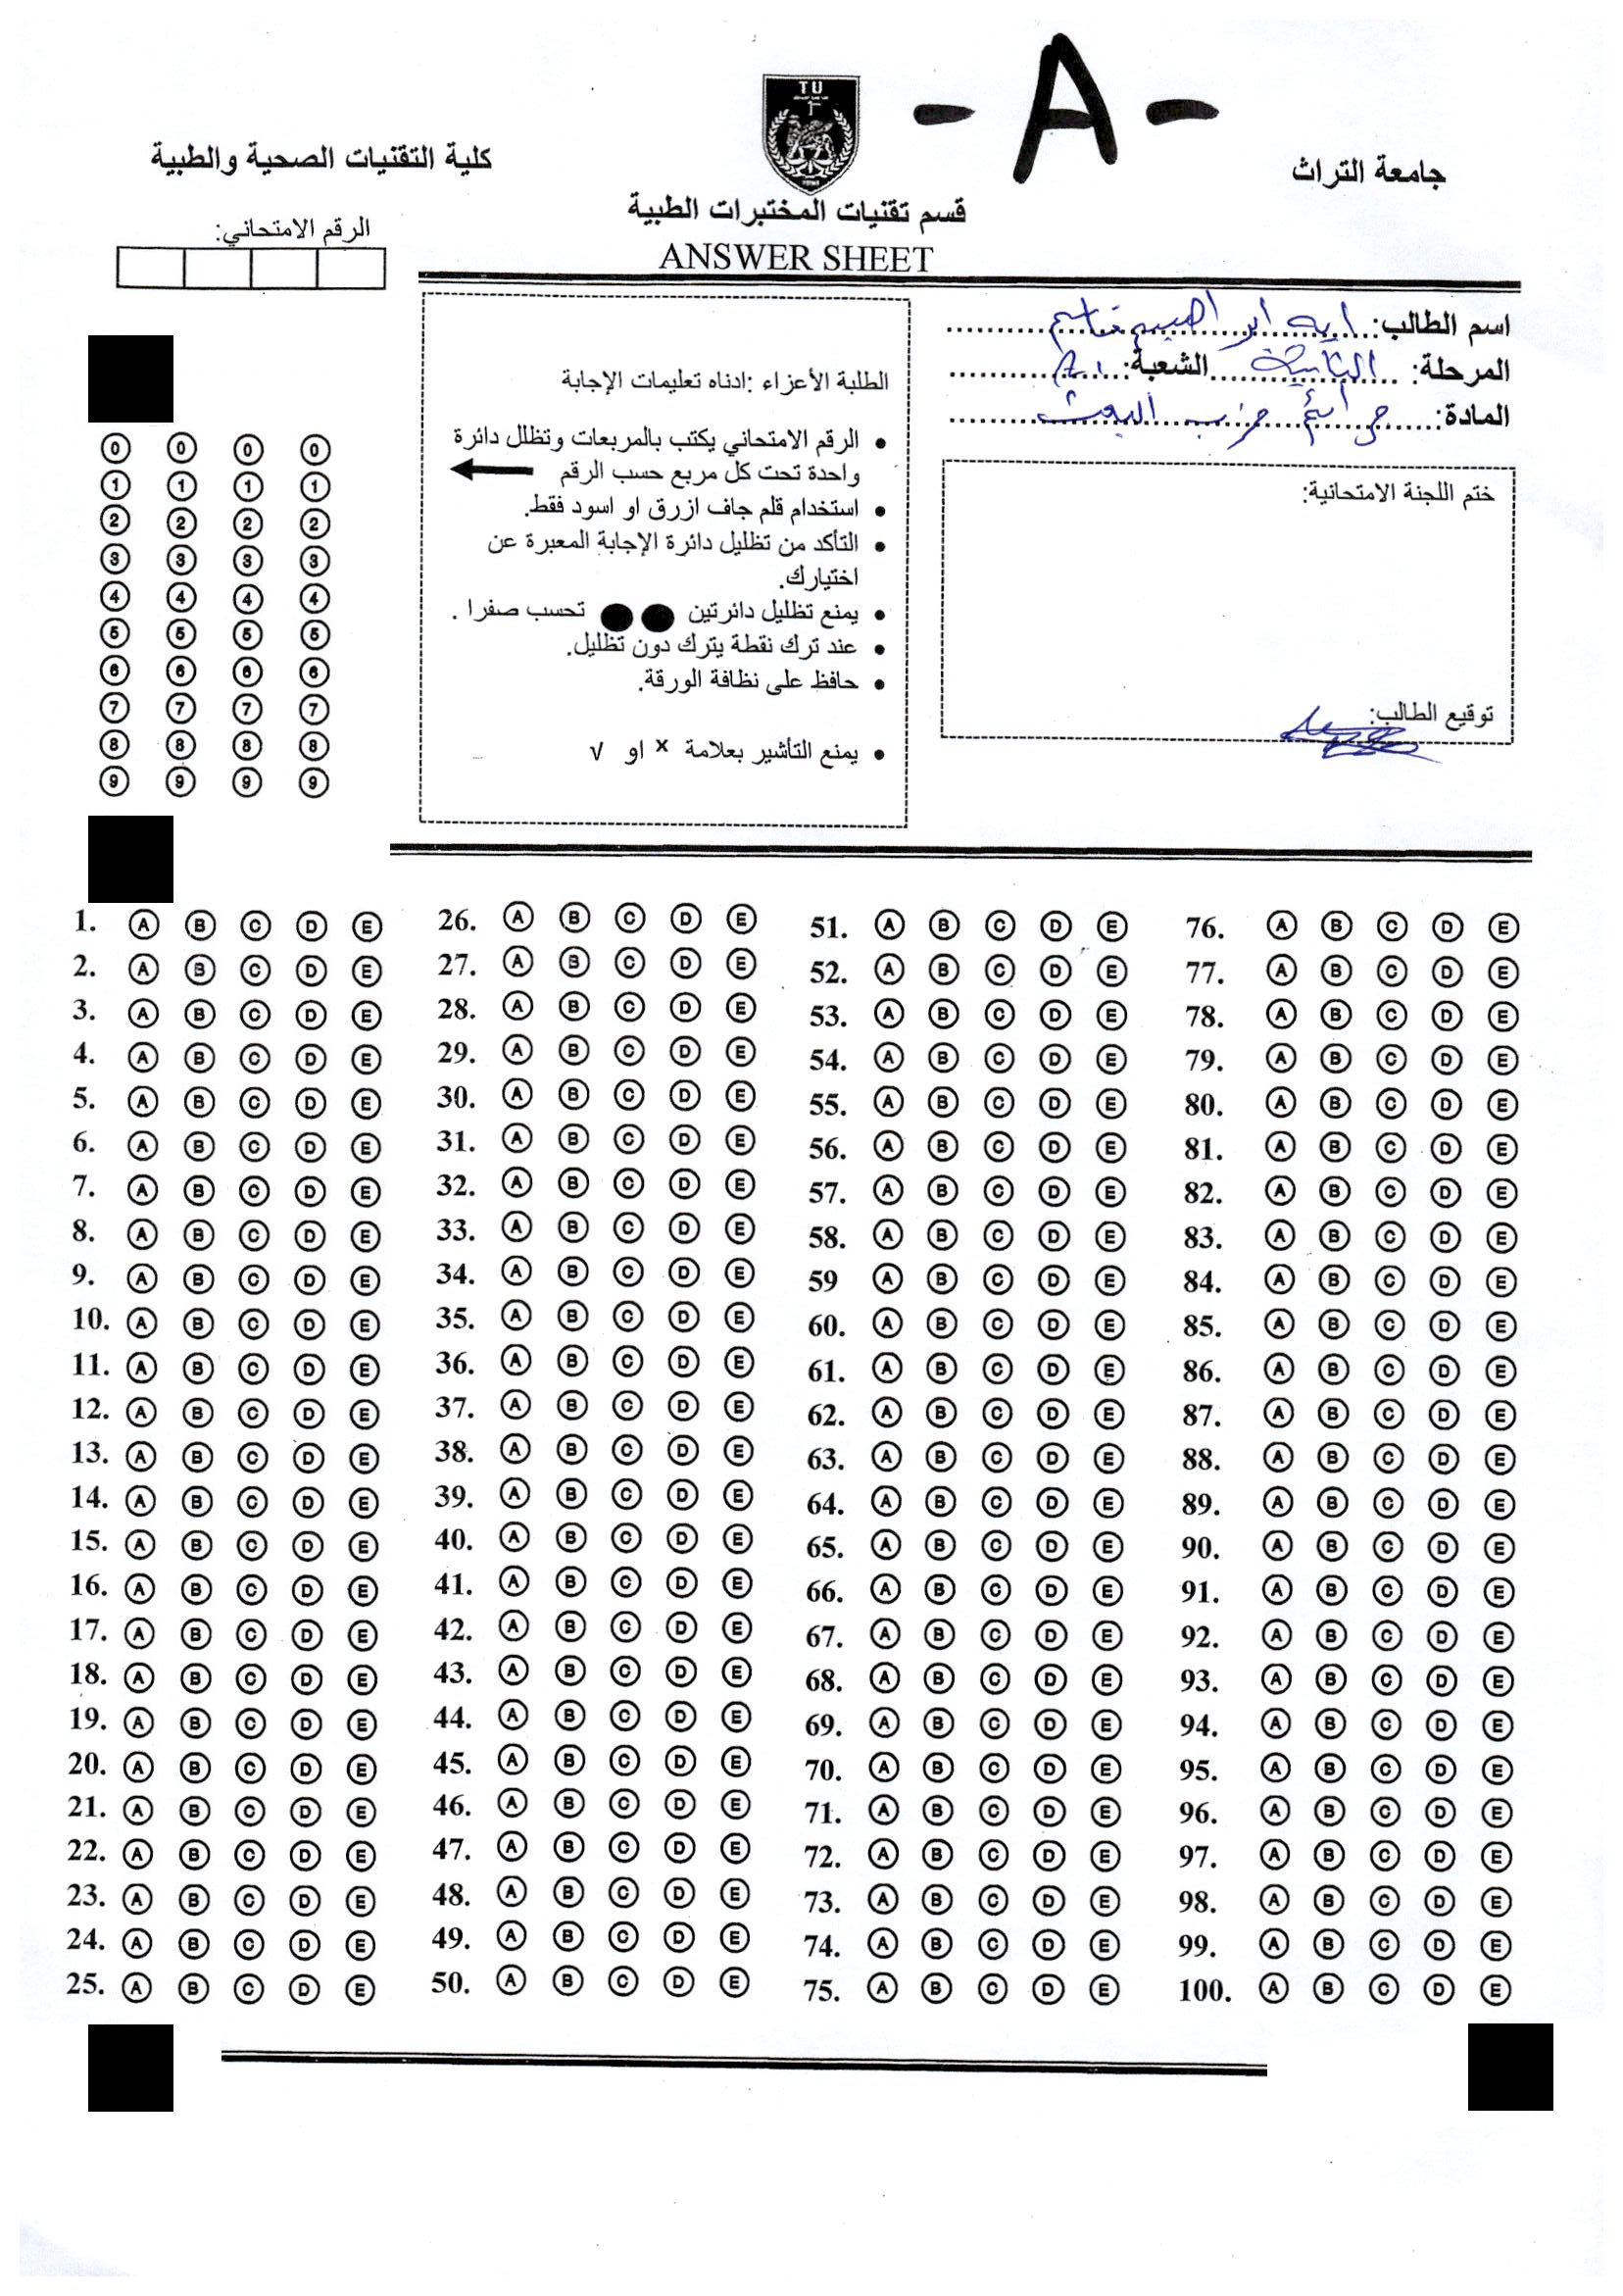 - A -
TU
جامعة التراث
كلية التقنيات الصحية والطبية
قسم تقنيات المختبرات الطبية
ANSWER SHEET
الرقم الامتحاني:
اسم الطالب: ايه ابراهيم قاسم
المرحلة: الثانية الشعبة: A1
المادة: جرائم حزب البعث
ختم اللجنة الامتحانية:
توقيع الطالب:
الطلبة الأعزاء :ادناه تعليمات الإجابة
• الرقم الامتحاني يكتب بالمربعات وتظلل دائرة
واحدة تحت كل مربع حسب الرقم
• استخدام قلم جاف ازرق او اسود فقط.
• التأكد من تظليل دائرة الإجابة المعبرة عن
اختيارك.
• يمنع تظليل دائرتين تحسب صفرا .
• عند ترك نقطة يترك دون تظليل.
• حافظ على نظافة الورقة.
• يمنع التأشير بعلامة x او √
0 0 0 0
1 1 1 1
2 2 2 2
3 3 3 3
4 4 4 4
5 5 5 5
6 6 6 6
7 7 7 7
8 8 8 8
9 9 9 9
1. A B C D E
2. A B C D E
3. A B C D E
4. A B C D E
5. A B C D E
6. A B C D E
7. A B C D E
8. A B C D E
9. A B C D E
10. A B C D E
11. A B C D E
12. A B C D E
13. A B C D E
14. A B C D E
15. A B C D E
16. A B C D E
17. A B C D E
18. A B C D E
19. A B C D E
20. A B C D E
21. A B C D E
22. A B C D E
23. A B C D E
24. A B C D E
25. A B C D E
26. A B C D E
27. A B C D E
28. A B C D E
29. A B C D E
30. A B C D E
31. A B C D E
32. A B C D E
33. A B C D E
34. A B C D E
35. A B C D E
36. A B C D E
37. A B C D E
38. A B C D E
39. A B C D E
40. A B C D E
41. A B C D E
42. A B C D E
43. A B C D E
44. A B C D E
45. A B C D E
46. A B C D E
47. A B C D E
48. A B C D E
49. A B C D E
50. A B C D E
51. A B C D E
52. A B C D E
53. A B C D E
54. A B C D E
55. A B C D E
56. A B C D E
57. A B C D E
58. A B C D E
59 A B C D E
60. A B C D E
61. A B C D E
62. A B C D E
63. A B C D E
64. A B C D E
65. A B C D E
66. A B C D E
67. A B C D E
68. A B C D E
69. A B C D E
70. A B C D E
71. A B C D E
72. A B C D E
73. A B C D E
74. A B C D E
75. A B C D E
76. A B C D E
77. A B C D E
78. A B C D E
79. A B C D E
80. A B C D E
81. A B C D E
82. A B C D E
83. A B C D E
84. A B C D E
85. A B C D E
86. A B C D E
87. A B C D E
88. A B C D E
89. A B C D E
90. A B C D E
91. A B C D E
92. A B C D E
93. A B C D E
94. A B C D E
95. A B C D E
96. A B C D E
97. A B C D E
98. A B C D E
99. A B C D E
100. A B C D E